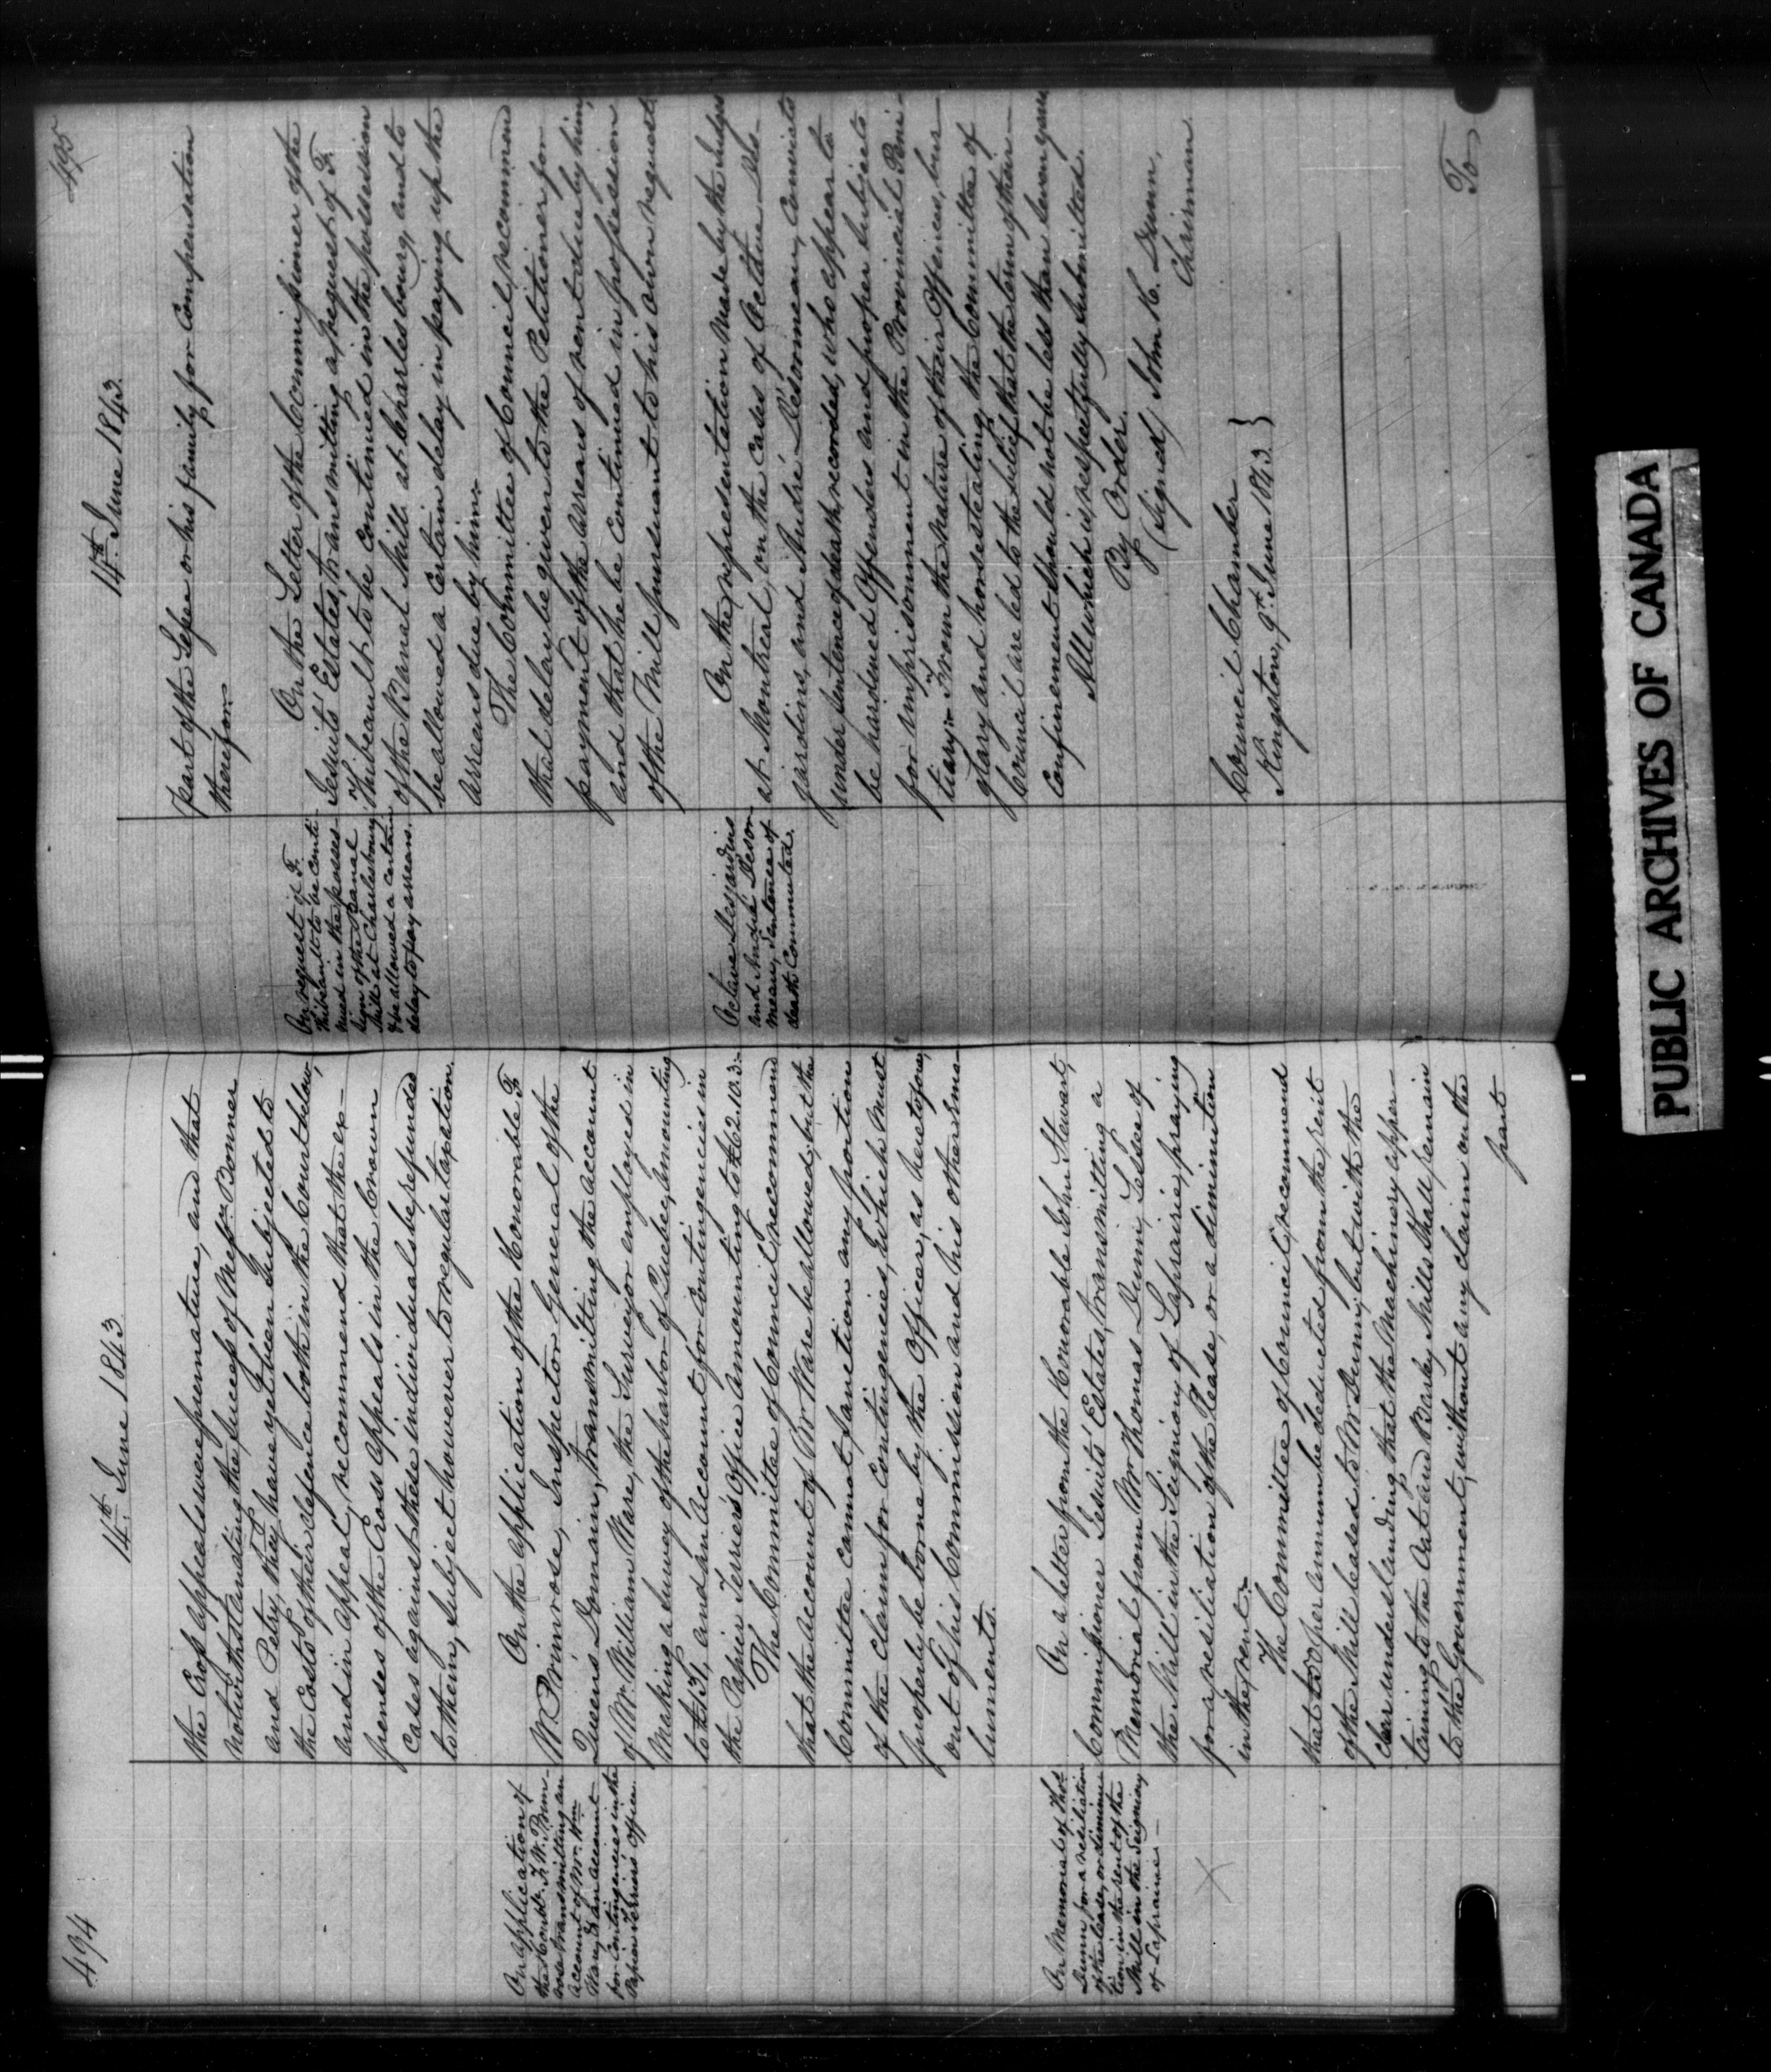 494
14th. June 1843
the Cross appeals were premature, and that
notwithstanding the success of Messrs. Bonner
and Petry, they have yet been subjected to
the Costs of their defence both in the Court below,
and in appeal, recommend that the ex-
penses of the Cross appeals in the Crown
Cases against these individuals be refunded
to them, subject however to regular taxation.
On application of
the Honble. F. W. Prim-
rose transmitting an
account of Mr. Wm.
Ware, & an account
for Contingencies in the
Papier Terrier Office.
On the application of the Honorable F.
W. Primrose, Inspector General of the
Queen's Domain, transmitting the account
of Mr. William Ware, the Surveyor employed in
making a survey of the harbor of Quebec, amounting
to £13, and an Account for Contingencies in
the Papier Terrier's Office amounting to £62.10.3:-
The Committee of Council, recommend
that the account of Mr. Ware be allowed; but the
Committee cannot sanction any portion
of the claim for Contingencies, which must
properly be borne by the Officer, as heretofore,
out of his Commission and his other Emo-
luments.
On Memorial of Thos.
Dunn for a resiliation
of the lease, or diminu-
tion in the rent of the
Mill in the Seigniory
of Laprairie -
On a letter from the Honorable John Stewart,
Commissioner Jesuits' Estates, transmitting a
Memorial from Mr Thomas Dunn, Lessee of
the Mill in the Seigniory of Laprairie, praying
for a resiliation of the lease, or a diminution
in the rent.-
The Committee of Council, recommend
that £50 per annum be deducted from the rent
of the Mill leased to Mr Dunn, but with the
clear understanding that the Machinery apper-
taining to the Oat and Barley Mills shall remain
to the Government, without any claim on the
part
495
14th. June 1843.
part of the Lessee or his family for Compensation
therefor.-
On request of F.
Thibeault to be conti-
nued in the posses-
sion of the Banal
Mill at Charlesbourg
& be allowed a certain
delay to pay arrears.
On the Letter of the Commissioner of the
Jesuits' Estates, transmitting a request of F.
Thibeault to be Continued in the possession
of the Banal Mill at Charlesbourg, and to
be allowed a Certain delay in paying up the
arrears due by him.-
The Committee of Council, recommend
that delay be given to the Petitioner for
payment of the arrears of rent due by him,
and that he be Continued in possession
of the Mill pursuant to his own request.
Octave Desjardins
and André Deson-
meau, Sentence of
death Commuted.
On the representation made by the Judges
at Montreal, on the Cases of Octave Des-
jardins, and André Desormeau, Convicts
under sentence of death, recorded, who appear to
be hardened Offenders and proper subjects
for imprisonment in the Provincial Peni-
tiary- From the nature of their Offences, bur-
glary and horsestealing, the Committee of
Council are led to the belief that the term of their
Confinement should not be less than Seven years
All which is respectfully submitted.
By Order.
(Signed) John H. Dunn,
Chairman.
Council Chamber }
Kingston, 9th. June 1843. }
To
PUBLIC ARCHIVES OF CANADA